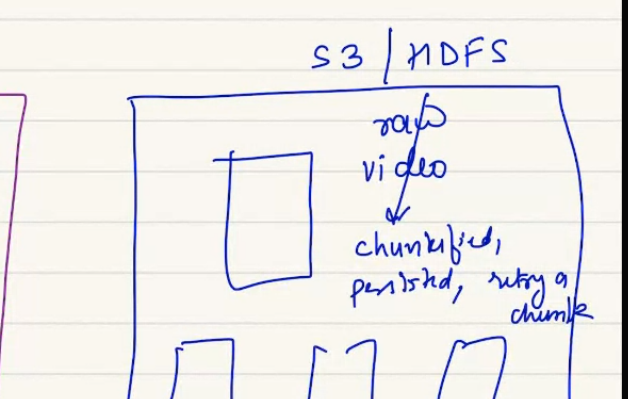 S3 / HDFS
raw
video
chunkified,
persisted, retry a
chunk